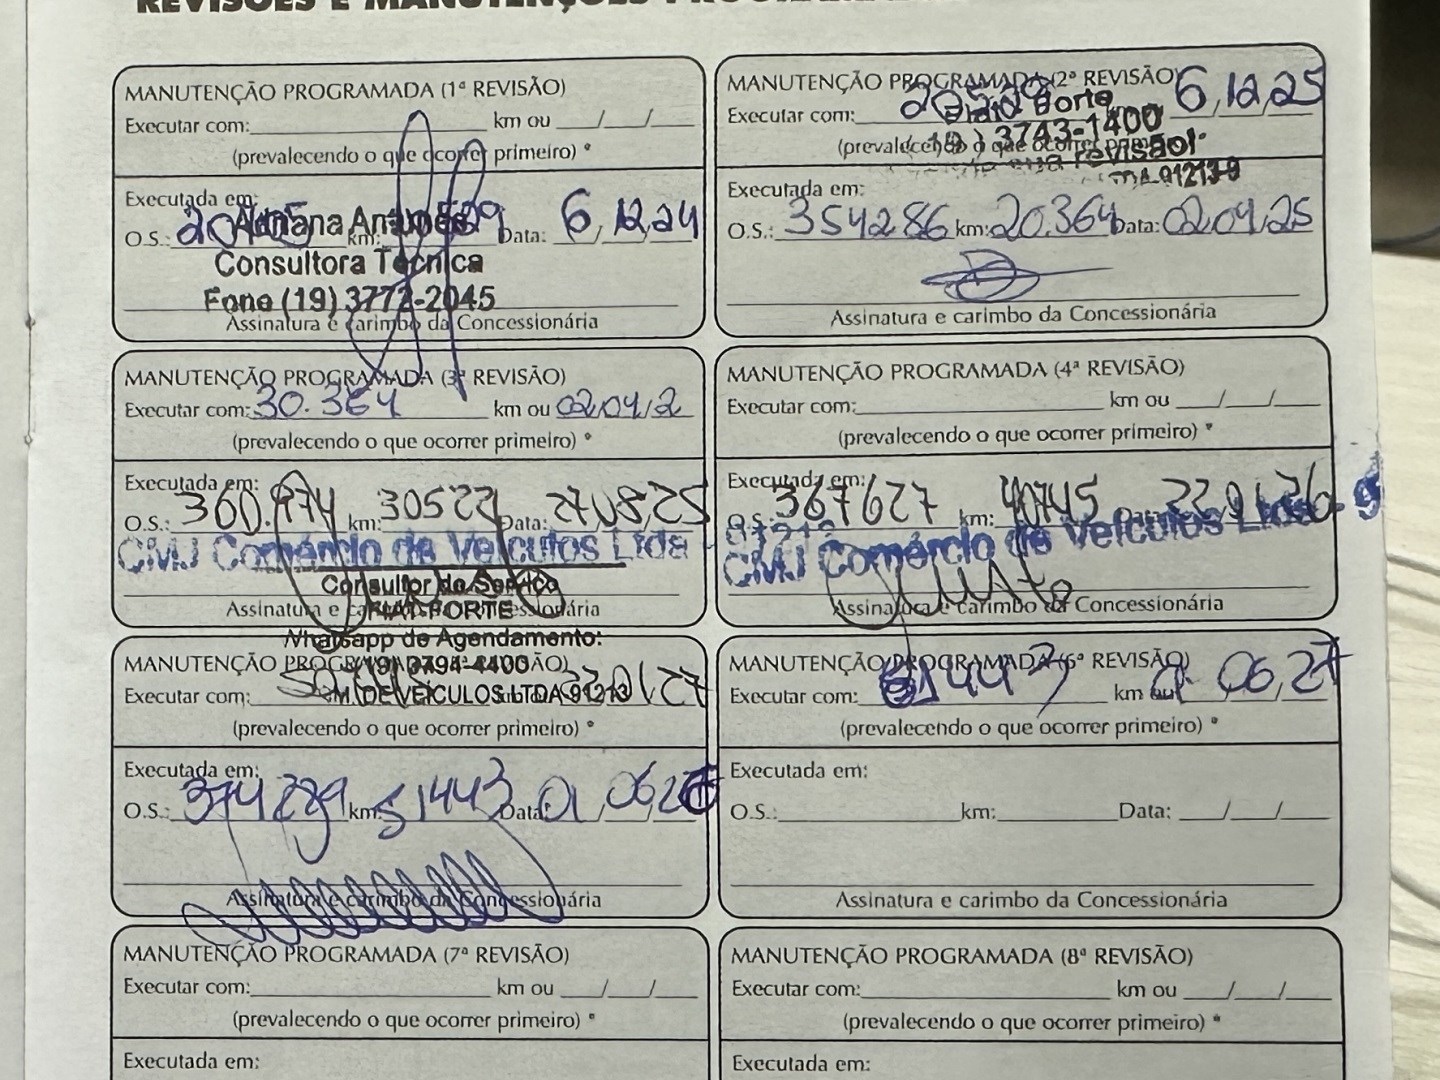 REVISÕES E MANUTENÇÕES
MANUTENÇÃO PROGRAMADA (1ª REVISÃO)
Executar com: km ou / /
(prevalecendo o que ocorrer primeiro) *
Executada em:
O.S.: km: Data: 6/12/24
Adriana Antunes
Consultora Técnica
Fone (19) 3772-2045
Assinatura e carimbo da Concessionária
MANUTENÇÃO PROGRAMADA (2ª REVISÃO)
Executar com: 6/12/25
(prevalecendo o que ocorrer primeiro)
Porte
(19) 3743-1400
revisão!
91213-9
Executada em:
O.S.: 354286 km: 20.364 Data: 02/04/25
Assinatura e carimbo da Concessionária
MANUTENÇÃO PROGRAMADA (3ª REVISÃO)
Executar com: 30.364 km ou 02/04/2
(prevalecendo o que ocorrer primeiro) *
Executada em:
O.S.: 360.974 km: 30522 Data: 27/08/25
CMJ Comércio de Veículos Ltda
Consultor de Serviço
FIAT FORTE
Assinatura e carimbo da Concessionária
Whatsapp de Agendamento:
MANUTENÇÃO PROGRAMADA (4ª REVISÃO)
Executar com: km ou / /
(prevalecendo o que ocorrer primeiro) *
Executada em:
O.S.: 367627 km: 40745 Data: 22/01/26
CMJ Comércio de Veículos Ltda
Assinatura e carimbo da Concessionária
MANUTENÇÃO PROGRAMADA REVISÃO)
(19) 3794-4400
Executar com: 22/01/27
VEICULOS LTDA 91213
(prevalecendo o que ocorrer primeiro) *
Executada em:
O.S.: 374289 km: 51443 Data: 01/06/26
Assinatura e carimbo da Concessionária
MANUTENÇÃO PROGRAMADA (6ª REVISÃO)
Executar com: 61443 km ou 06/27
(prevalecendo o que ocorrer primeiro) *
Executada em:
O.S.: km: Data: / /
Assinatura e carimbo da Concessionária
MANUTENÇÃO PROGRAMADA (7ª REVISÃO)
Executar com: km ou / /
(prevalecendo o que ocorrer primeiro) *
Executada em:
MANUTENÇÃO PROGRAMADA (8ª REVISÃO)
Executar com: km ou / /
(prevalecendo o que ocorrer primeiro) *
Executada em: